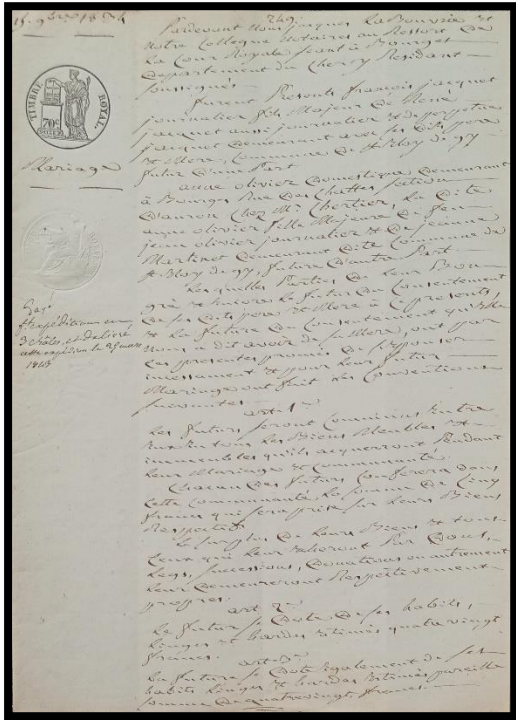 15. 9bre 1824
249.
TIMBRE ROYAL.
70c
Mariage
ft expédition en
3 rôles, et délivré
1825
Pardevant Nous jacques LaBouvrie et
Notre Collegue Notaires au Ressort de
La Cour Royale séant à Bourges
Departement du Cher y Residant
soussignés
furent Présents françois jacquet
journalier fils Majeur de René
jacquet aussi journalier et de perpétue
jacquet demeurant avec ses dits pere
et Mere, Commune de St Eloy de gy
futur d'une Part
anne olivier domestique demeurant
à Bourges Rue des Chattes section
d'auron Chez Mr Chertier, La dite
anne olivier fille Majeure de feu
jean olivier journalier et de jeanne
Martinet demeurant dite Commune de
St Eloy de gy, future d'autre Part
Lesquelles Parties, de Leur Bon
gré et encore Le futur du Consentement
de ses dits pere et Mere à Ce présents,
et La future du Consentement qu'elle
Nous a dit avoir de sa Mere, ont par
Ces presentes promis de s'Epouser
incessament et pour Leur futur
Mariage ont fait Les Conventions
suivantes
art. 1er
Les futurs seront Communs Entre
Eux En tous Les Biens Meubles et
immeubles qu'ils acquerront Pendant
Leur Mariage et Communauté.
Chacun des futurs Conferera dans
Cette Communauté La somme de Cinq
francs qui sera prise sur Leurs Biens
Respectifs
Le surplus de Leurs Biens et tous
Ceux qui Leur Echeront Par Dons,
Legs, successions, donations ou autrement
Leur demeureront Respectivement
propres.
art 2e
Le futur se Dote de ses habits,
Linges et hardes Estimés quatre vingt
francs.
art 3e
La future se Dote Egalement de ses
habits Linges et hardes Estimés pareille
somme de quatre vingt francs.